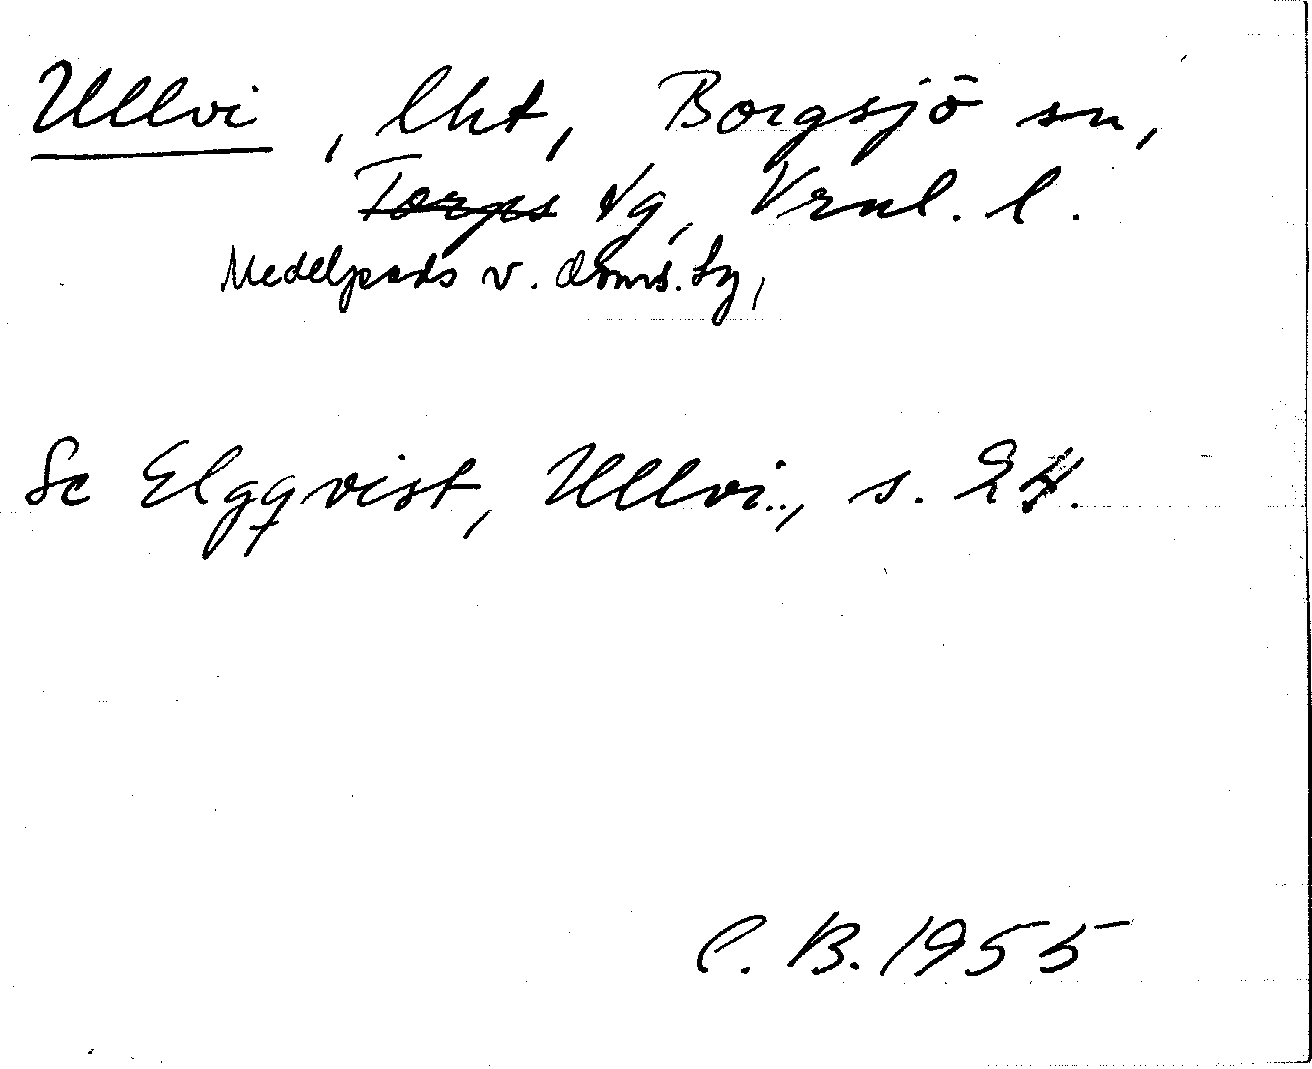 Ullvi, lht, Borgsjö sn,
Torps tg, Vrnl. l.
Medelpads v. doms. tg,
Se Elgqvist, Ullvi.., s. 24.
C. B. 1955